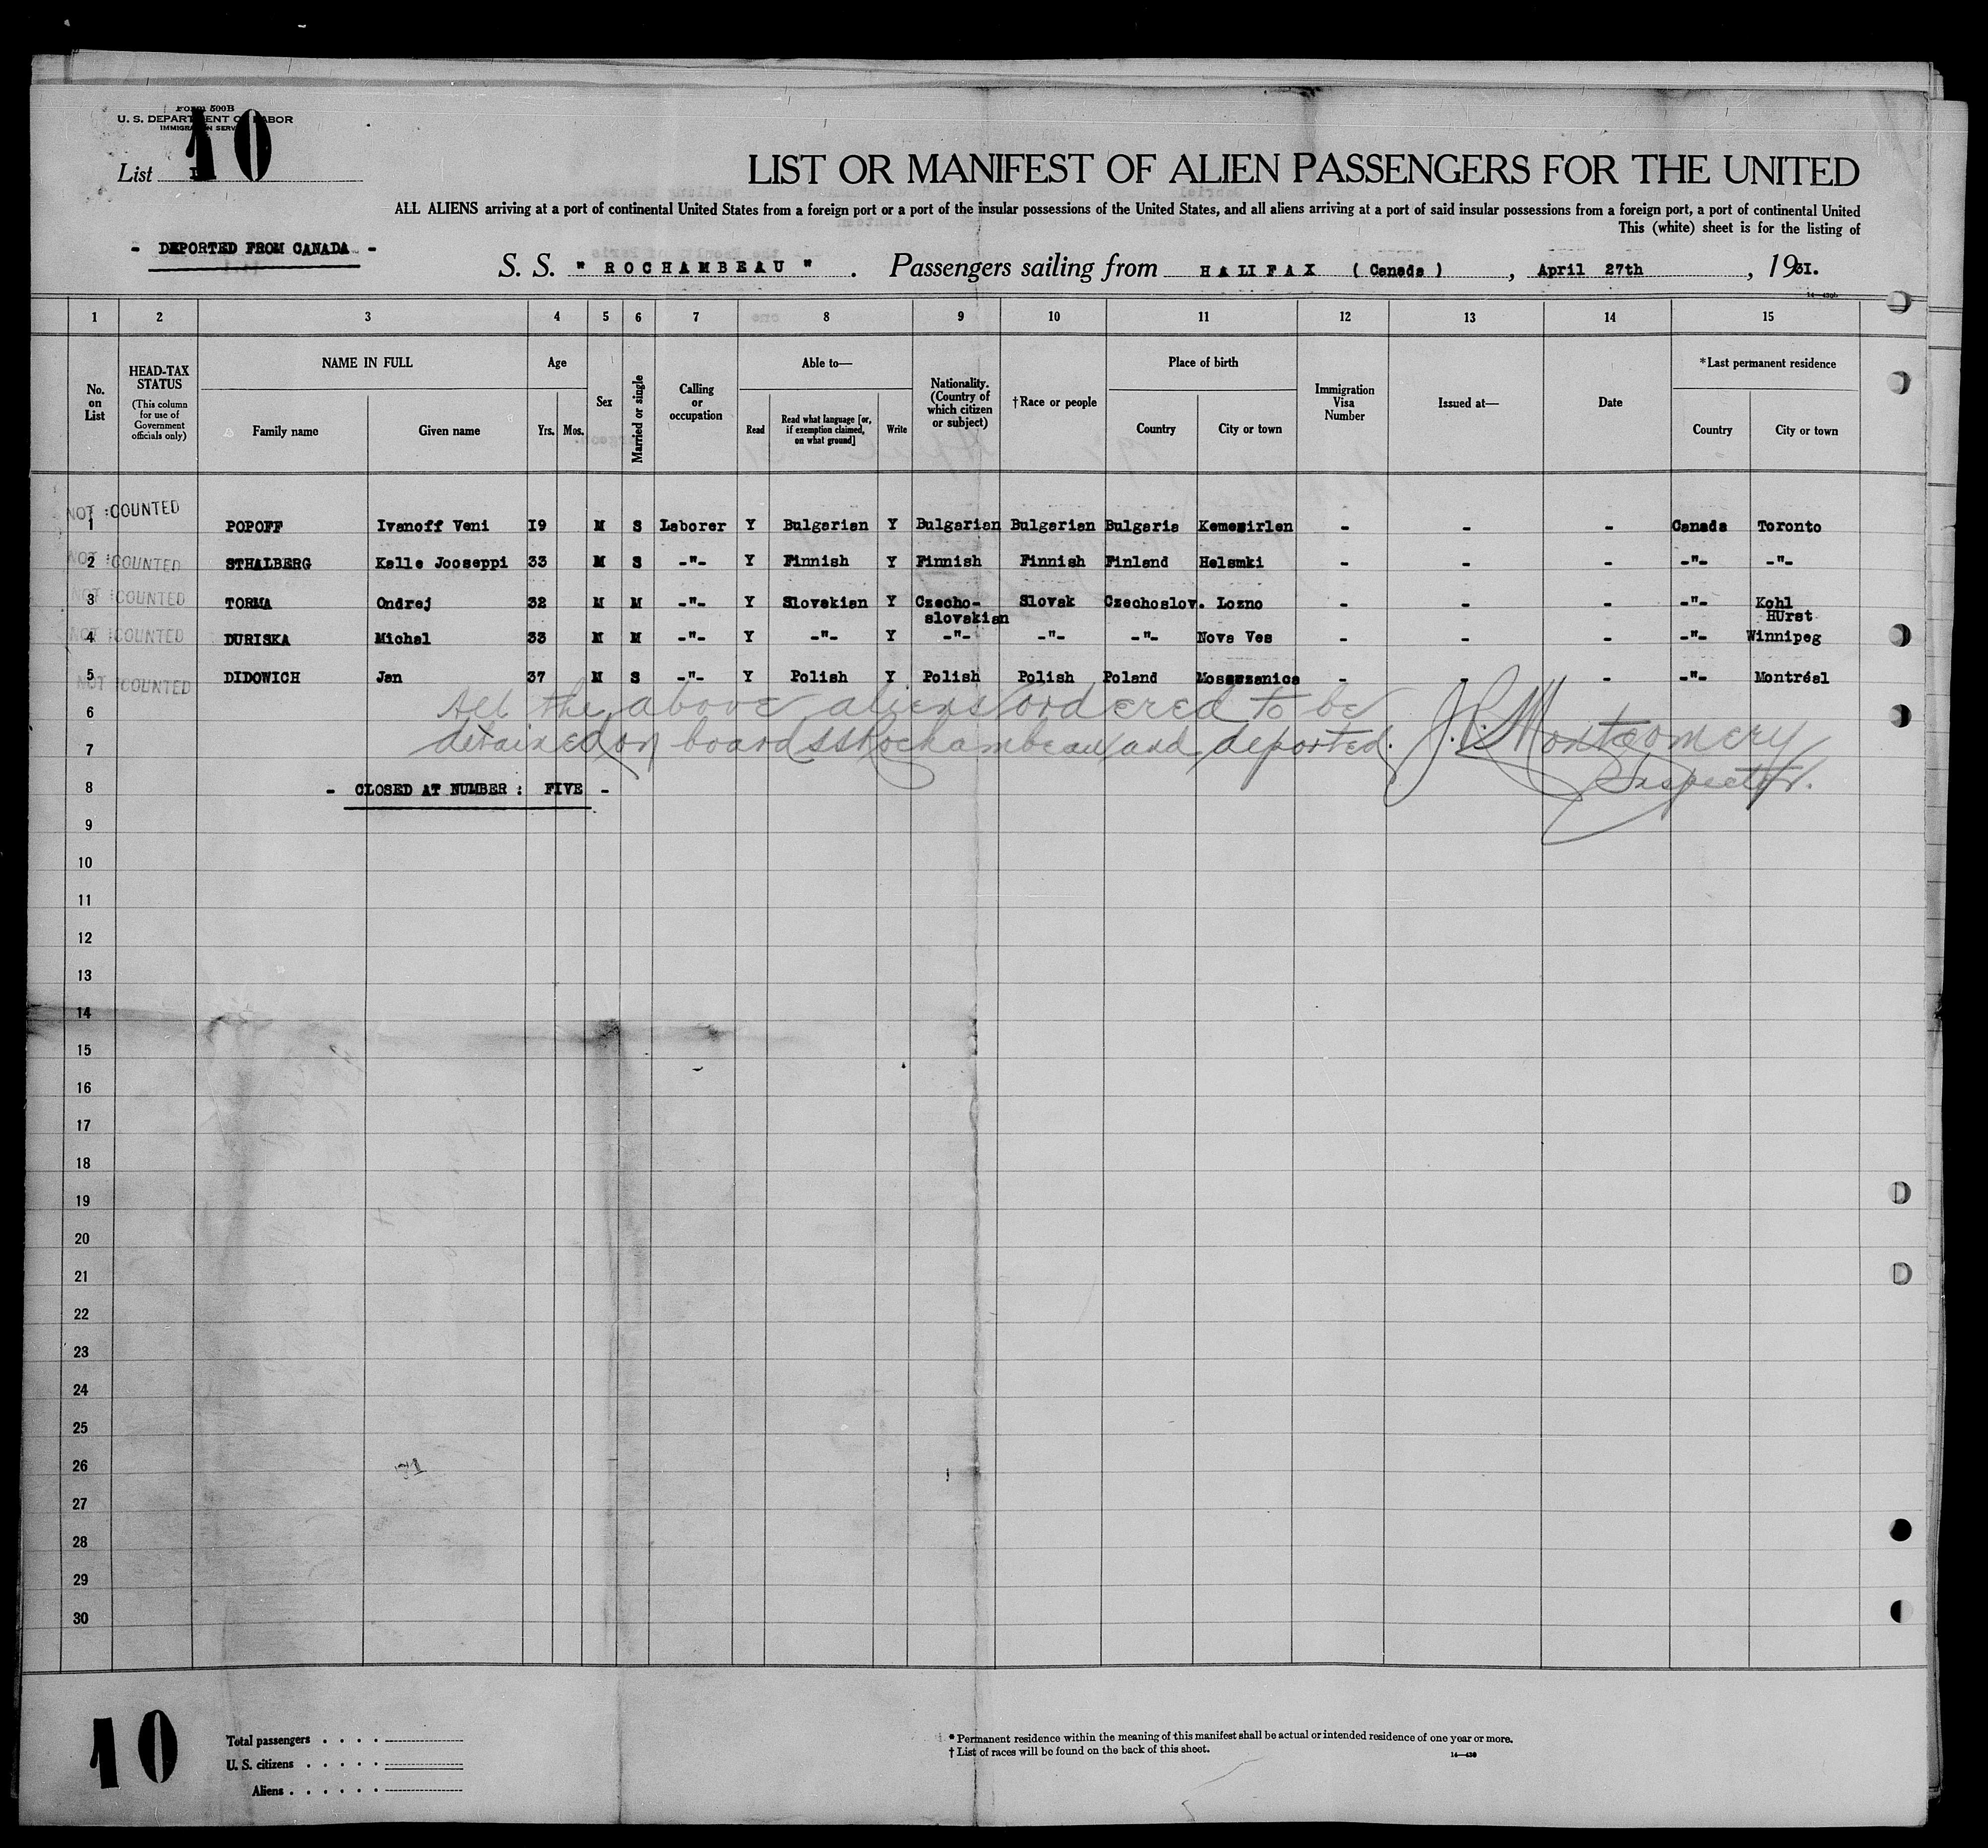 FORM 500B
U. S. DEPARTMENT OF LABOR
IMMIGRATION SERVICE
10
List I
LIST OR MANIFEST OF ALIEN PASSENGERS FOR THE UNITED
ALL ALIENS arriving at a port of continental United States from a foreign port or a port of the insular possessions of the United States, and all aliens arriving at a port of said insular possessions from a foreign port, a port of continental United
This (white) sheet is for the listing of
- DEPORTED FROM CANADA -
S. S. " ROCHAMBEAU " . Passengers sailing from HALIFAX (Canada) , April 27th , 1931.
1 2 3 4 5 6 7 8 9 10 11 12 13 14 15
No. on List
HEAD-TAX STATUS (This column for use of Government officials only)
NAME IN FULL
Family name Given name
Age
Yrs. Mos.
Sex
Married or single
Calling or occupation
Able to—
Read Read what language [or, if exemption claimed, on what ground] Write
Nationality. (Country of which citizen or subject)
†Race or people
Place of birth
Country City or town
Immigration Visa Number
Issued at—
Date
*Last permanent residence
Country City or town
NOT COUNTED
1 POPOFF Ivanoff Veni I9 M S Laborer Y Bulgarian Y Bulgarian Bulgarian Bulgaria - - - Canada Toronto
NOT COUNTED
2 STHALBERG Kalle Jooseppi 33 M S -"- Y Finnish Y Finnish Finnish Finland Helsmki - - - -"- -"-
NOT COUNTED
3 TORMA Ondrej 32 M M -"- Y Slovakian Y Czecho-slovakian Slovak Czechoslov. Lozno - - - -"- Kohl HUrst
NOT COUNTED
4 DURISKA Michal 33 M M -"- Y -"- Y -"- -"- -"- Nova Ves - - - -"- Winnipeg
NOT COUNTED
5 DIDOWICH Jan 37 M S -"- Y Polish Y Polish Polish Poland - - - -"- Montréal
6 All the above aliens ordered to be
7 detained on board SS Rochambeau and deported. J. R. Montgomery
Inspector.
8 - CLOSED AT NUMBER : FIVE -
9
10
11
12
13
14
15
16
17
18
19
20
21
22
23
24
25
26
27
28
29
30
10
Total passengers . . . .
U. S. citizens . . . . .
Aliens . . . . . .
* Permanent residence within the meaning of this manifest shall be actual or intended residence of one year or more.
† List of races will be found on the back of this sheet.
14—430